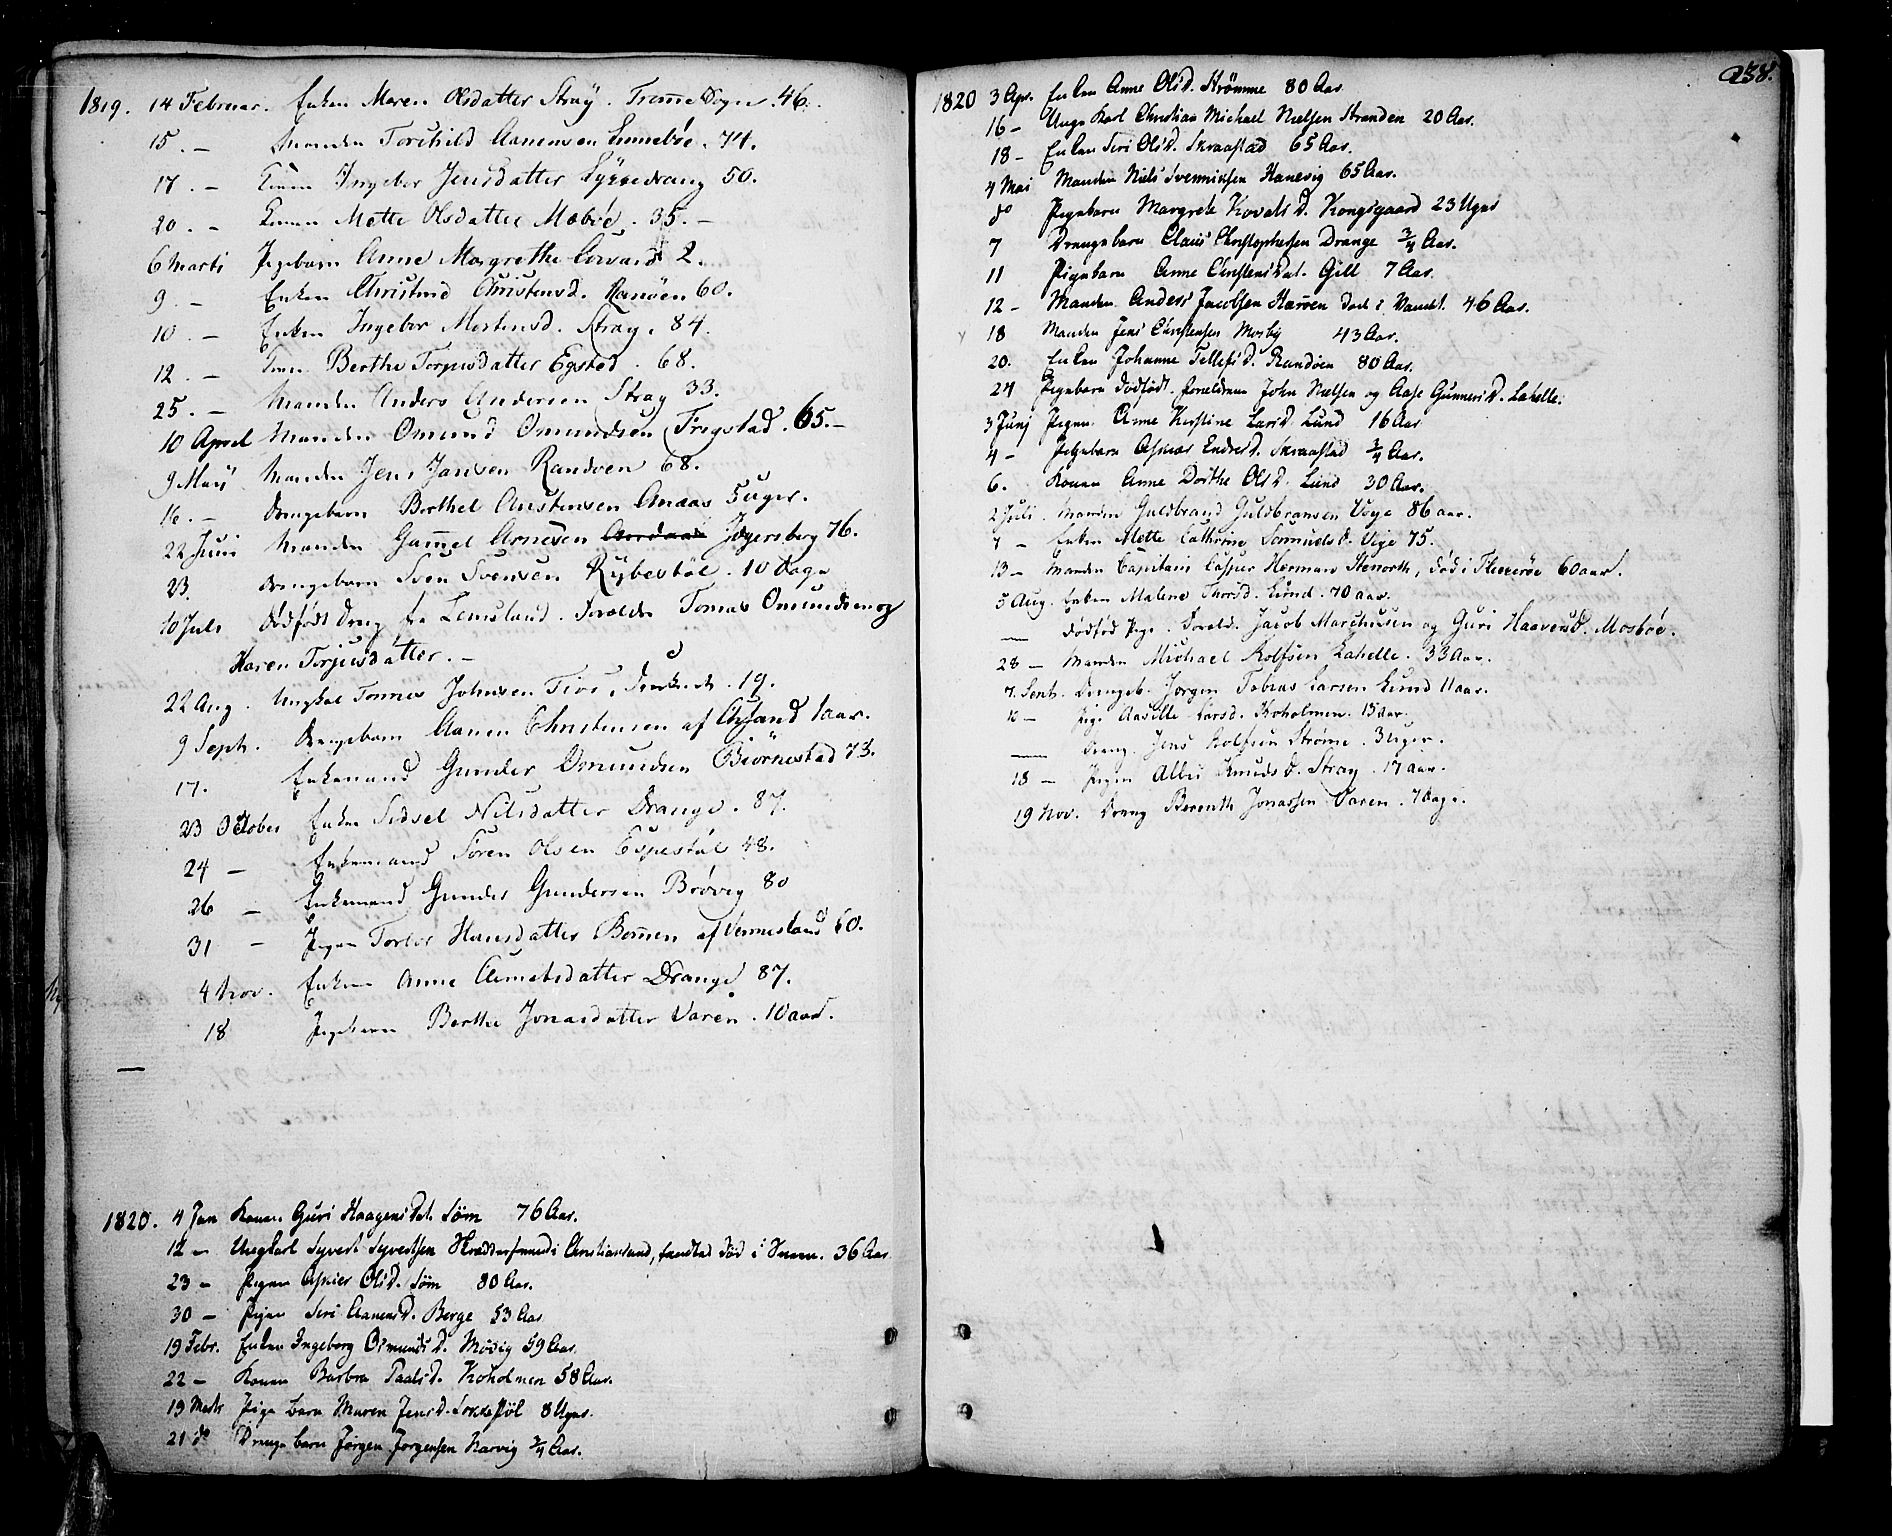 1819. 14 Februar. Enken Maren Olsdatter Stray. Tromme Sogn. 46.
15. – Manden Torchild Aanensen Linnebøe. 74.
17. – Konen Ingebor Jensdatter 50.
20. – Konen Mette Olsdatter Mæbøe. 35. –
6 Marti Pigebarn Anne Margrethe 2.
9. – Enken Christine Christensd. Ranöen 60.
10 – Enken Ingebor Mortensd. Stray. 84.
12. – Konen Berthe Torjusdatter Egsted. 68.
25. – Manden Anders Andersen Stray 33.
10 April Manden Omund Omundsen Frigstad. 65. –
9 Maii Manden Jens Jansen Randøen 68.
16. – Drengebarn Berthel Austensen Anaas 5 uger.
22 Juni Manden Gamel Arnesen Jægersberg 76.
23. Drengebarn Sven Svensen Rybestøl. 10 Dage
10 Juli Dødfødt Dreng fra Lemsland. Forældre Tomas Omundsen og
Karen Torjusdatter. –
22 Aug. Ungkal Tønnes Johnsen 19.
9 Seph. Drengebarn Aanen Christensen af 1 aar.
17. Enkemand Gunder Omundsen Biørnestad 73.
23 October Enken Sidsel Nilsdatter Drange. 87.
24 – Enkemand Søren Olsen Espestøl 48.
26 – Enkemand Gunder Gundersen Brøvig 80
31 – Pigen Torbor Hansdatter Bomen af Vennesland 60.
4 Nov. Enken Anne Clemetsdatter Drange 87.
18 Pigebarn Berthe Jonasdatter Varen. 10 aar.
1820. 4 Jan Konen Guri Haagensdat. Søm 76 Aar.
12 – Ungkarl Syvert Syvertsen i Christiansand, fundtes død i Sneen. 36 Aar
23 – Pigen Asnier Olsd. Søm 80 Aar.
30 – Pigen Siri Aanensd. Berge 53 Aar
19 Febr. Enken Ingeborg Osmundsd. Møvig 59 Aar.
22 – Konen Barbra Paalsd. Koholmen 58 Aar.
19 Marts Pige barn Maren Jensd. 8 Uger.
21 do Drenge barn Jørgen Jorgensen Narvig 3/4 Aar.
238.
1820 3 Apr. Enken Anne Olsd. Strømme 80 Aar
16 – Unge Karl Christian Michael Nielsen Stranden 20 Aar.
18 – Enken Siri Olsd. Skraastad 65 Aar.
4 Mai Manden Niels Svennivsen Hanevig 65 Aar.
do Pigebarn Margrete Kovalsd. Kongsgaard 23 Uger
7 Drengebarn Claus Christophersen Drange 3/4 Aar.
11 Pigebarn Anne Christensdat. Gill 7 Aar.
12 – Manden Anders Jacobsen Harøen død i Vandet. 46 Aar.
18 Manden Jens Christensen Mosby 43 Aar.
20. Enken Johanne Tellefsd. Randøen 80 Aar.
24 Pigebarn dødfødt. Foreldrene John Nielsen og Aase Gunnersd. Lahelle.
3 Junj Pigen Anne Kirstine Larsd. Lund 16 Aar
4 – Pigebarn Asnas Endresd. Skraastad 3/4 Aar.
6. Konen Anne Dorthe Olsd. Lund 30 Aar.
2 Juli. Manden Guldbrand Guldbransen Voye 86 aar.
7 – Enken Mette Cathrine Samuelsd. Vige 75.
13 – Manden Capitain Casper Herman Stenorth, død i Flekerøe 60 aar.
5 Aug. Enken Malene Thorsd. Lund. 70 aar.
— Dødfød Pige. Foreld. Jacob Marchusen og Guri Haavorsd. Mosbøe.
28 – Manden Michael Rolfsen Lahelle. 33 Aar.
7. Sept. Drengeb. Jørgen Tobias Larsen Lund 11 aar.
10 – Pige Aasille Larsd. Koholmen. 15 aar.
— Dreng. Jens Rolfsen Strøme. 3 uger.
18 – Pigen Albu Knudsd. Stray. 17 aar.
19 Nov. Dreng Berenth Jonassen Varen. 7 dage.